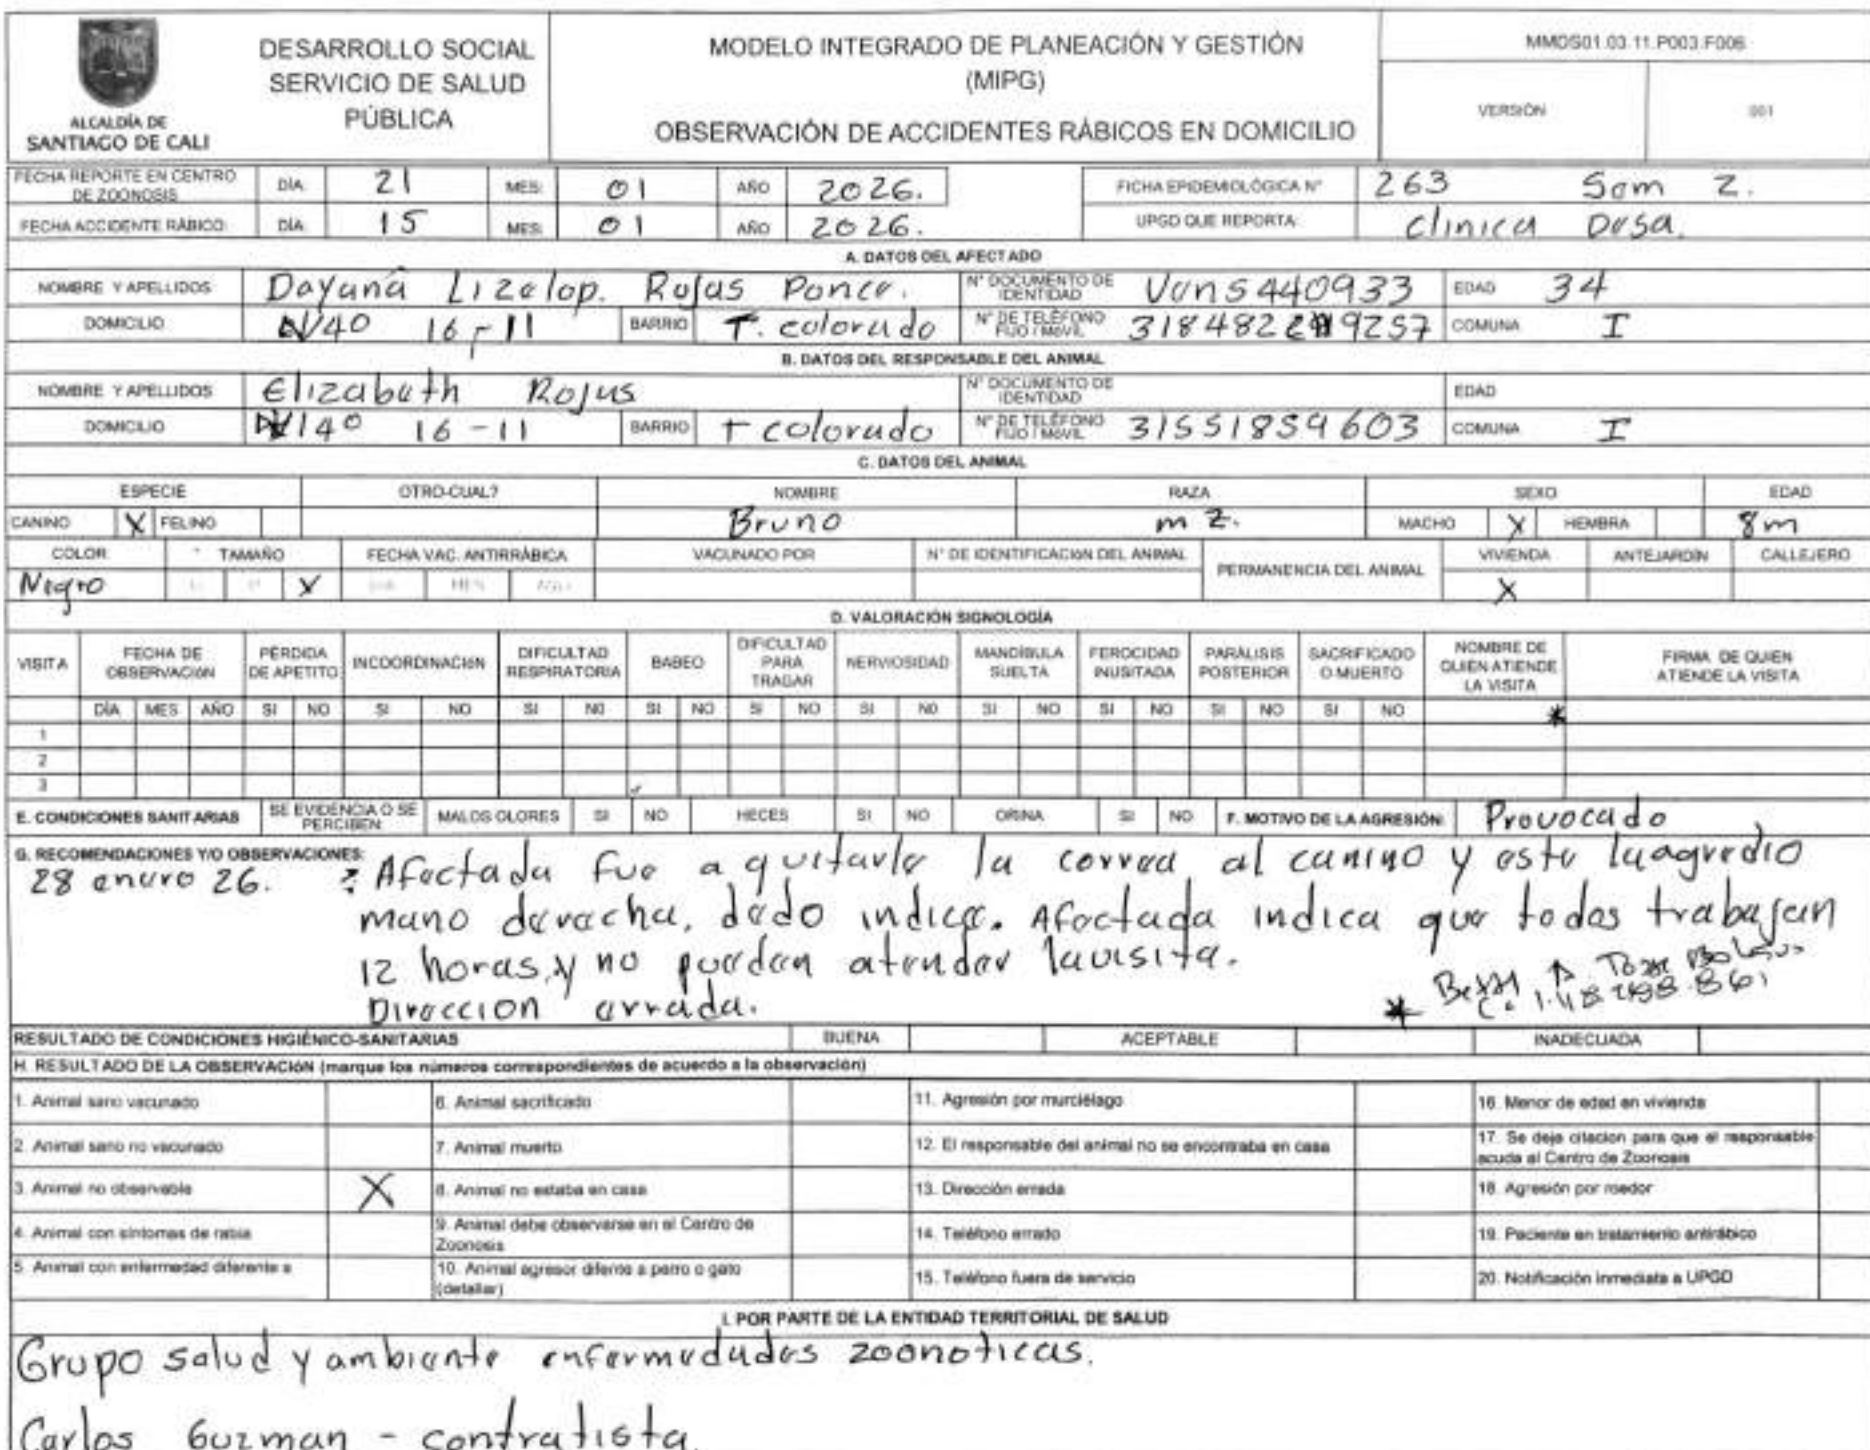 ALCALDÍA DE
SANTIAGO DE CALI
DESARROLLO SOCIAL
SERVICIO DE SALUD
PÚBLICA
MODELO INTEGRADO DE PLANEACIÓN Y GESTIÓN
(MIPG)
OBSERVACIÓN DE ACCIDENTES RÁBICOS EN DOMICILIO
MMDS01.03.11.P003.F006
VERSIÓN 001
FECHA REPORTE EN CENTRO DE ZOONOSIS DÍA 21 MES: 01 AÑO 2026. FICHA EPIDEMIOLÓGICA N° 263 Sem 2.
FECHA ACCIDENTE RÁBICO: DÍA 15 MES: 01 AÑO 2026. UPGD QUE REPORTA: Clinica Desa.
A. DATOS DEL AFECTADO
NOMBRE Y APELLIDOS Dayana Lizelop. Rojas Ponce. N° DOCUMENTO DE IDENTIDAD Ven5440933 EDAD 34
DOMICILIO 40 16-11 BARRIO T. colorado N° DE TELÉFONO FIJO / MÓVIL 318482 9257 COMUNA I
B. DATOS DEL RESPONSABLE DEL ANIMAL
NOMBRE Y APELLIDOS Elizabeth Rojas N° DOCUMENTO DE IDENTIDAD EDAD
DOMICILIO 40 16-11 BARRIO T colorado N° DE TELÉFONO FIJO / MÓVIL 31551859603 COMUNA I
C. DATOS DEL ANIMAL
ESPECIE OTRO-CUAL? NOMBRE RAZA SEXO EDAD
CANINO X FELINO Bruno mz. MACHO X HEMBRA 8m
COLOR TAMAÑO FECHA VAC. ANTIRRÁBICA VACUNADO POR N° DE IDENTIFICACIÓN DEL ANIMAL PERMANENCIA DEL ANIMAL VIVIENDA ANTEJARDÍN CALLEJERO
Negro X DÍA MES AÑO X
D. VALORACIÓN SIGNOLOGÍA
VISITA FECHA DE OBSERVACIÓN PÉRDIDA DE APETITO INCOORDINACIÓN DIFICULTAD RESPIRATORIA BABEO DIFICULTAD PARA TRAGAR NERVIOSIDAD MANDÍBULA SUELTA FEROCIDAD INUSITADA PARÁLISIS POSTERIOR SACRIFICADO O MUERTO NOMBRE DE QUIEN ATIENDE LA VISITA FIRMA DE QUIEN ATIENDE LA VISITA
DÍA MES AÑO SI NO SI NO SI NO SI NO SI NO SI NO SI NO SI NO SI NO SI NO *
1
2
3
E. CONDICIONES SANITARIAS SE EVIDENCIA O SE PERCIBEN: MALOS OLORES SI NO HECES SI NO ORINA SI NO F. MOTIVO DE LA AGRESIÓN: Provocado
G. RECOMENDACIONES Y/O OBSERVACIONES:
28 enero 26. : Afectada fue a quitarle la correa al canino y este la agredio
mano derecha, dedo indice. Afectada indica que todos trabajan
12 horas, y no pueden atender la visita.
Direccion errada.
*
RESULTADO DE CONDICIONES HIGIÉNICO-SANITARIAS BUENA ACEPTABLE INADECUADA
H. RESULTADO DE LA OBSERVACIÓN (marque los números correspondientes de acuerdo a la observación)
1. Animal sano vacunado 6. Animal sacrificado 11. Agresión por murciélago 16. Menor de edad en vivienda
2. Animal sano no vacunado 7. Animal muerto 12. El responsable del animal no se encontraba en casa 17. Se deja citacion para que el responsable acuda al Centro de Zoonosis
3. Animal no observable X 8. Animal no estaba en casa 13. Dirección errada 18. Agresión por roedor
4. Animal con síntomas de rabia 9. Animal debe observarse en el Centro de Zoonosis 14. Teléfono errado 19. Paciente en tratamiento antirábico
5. Animal con enfermedad diferente a 10. Animal agresor difente a perro o gato (detallar) 15. Teléfono fuera de servicio 20. Notificación inmediata a UPGD
I. POR PARTE DE LA ENTIDAD TERRITORIAL DE SALUD
Grupo salud y ambiente enfermedades zoonoticas.
Carlos Guzman - contratista.